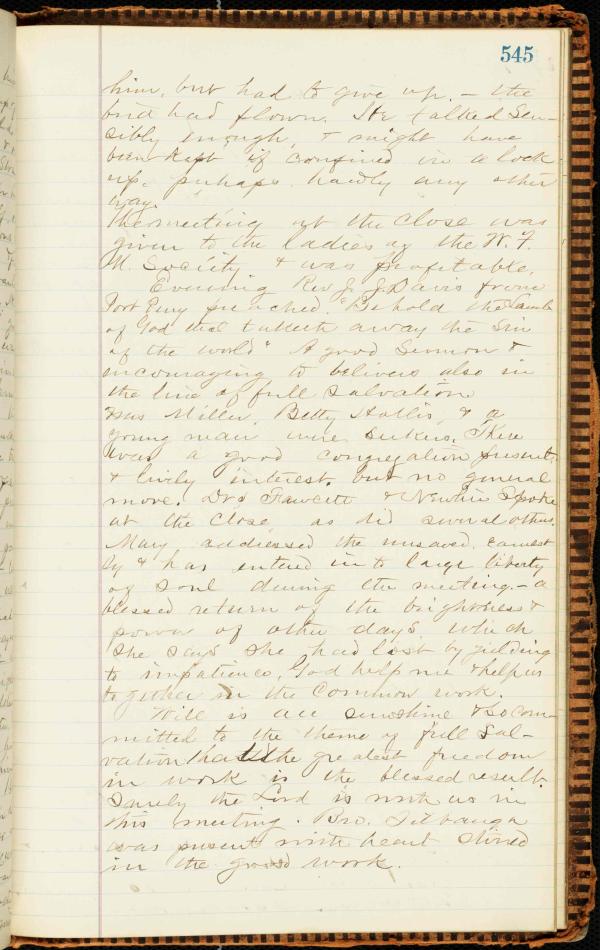 545
him, but had to give up. - the
bird had flown. He talked Sen-
sibly enough, & might have
been kept if confined in a lock
up. perhaps hardly any other
way.
The meeting at the close was
given to the ladies of the W. F.
M. Society & was profitable.
Evening Rev J. J. Davis from
Port Perry preached. "Behold the Lamb
of God that taketh away the Sin
of the world" A good Sermon &
encouraging to believers also in
the line of full Salvation
Miller, Betty Hollis, & a
young man were Seekers. There
was a good congregation present
& lively interest. but no general
move. Drs Fawcett & Spoke
at the close as did several others.
Mary addressed the unsaved earnest
ly & has entered in to large liberty
of soul during the meeting. - a
blessed return of the brightness &
power of other days which
She says She had lost by yielding
to impatience. God help me & help us
together in the Common work.
Will is all sunshine & so com-
mitted to the theme of full Sal-
vation that the greatest freedom
in work is the blessed result.
Surely the Lord is with us in
this meeting. Bro.
was present with heart Stirred
in the good work.